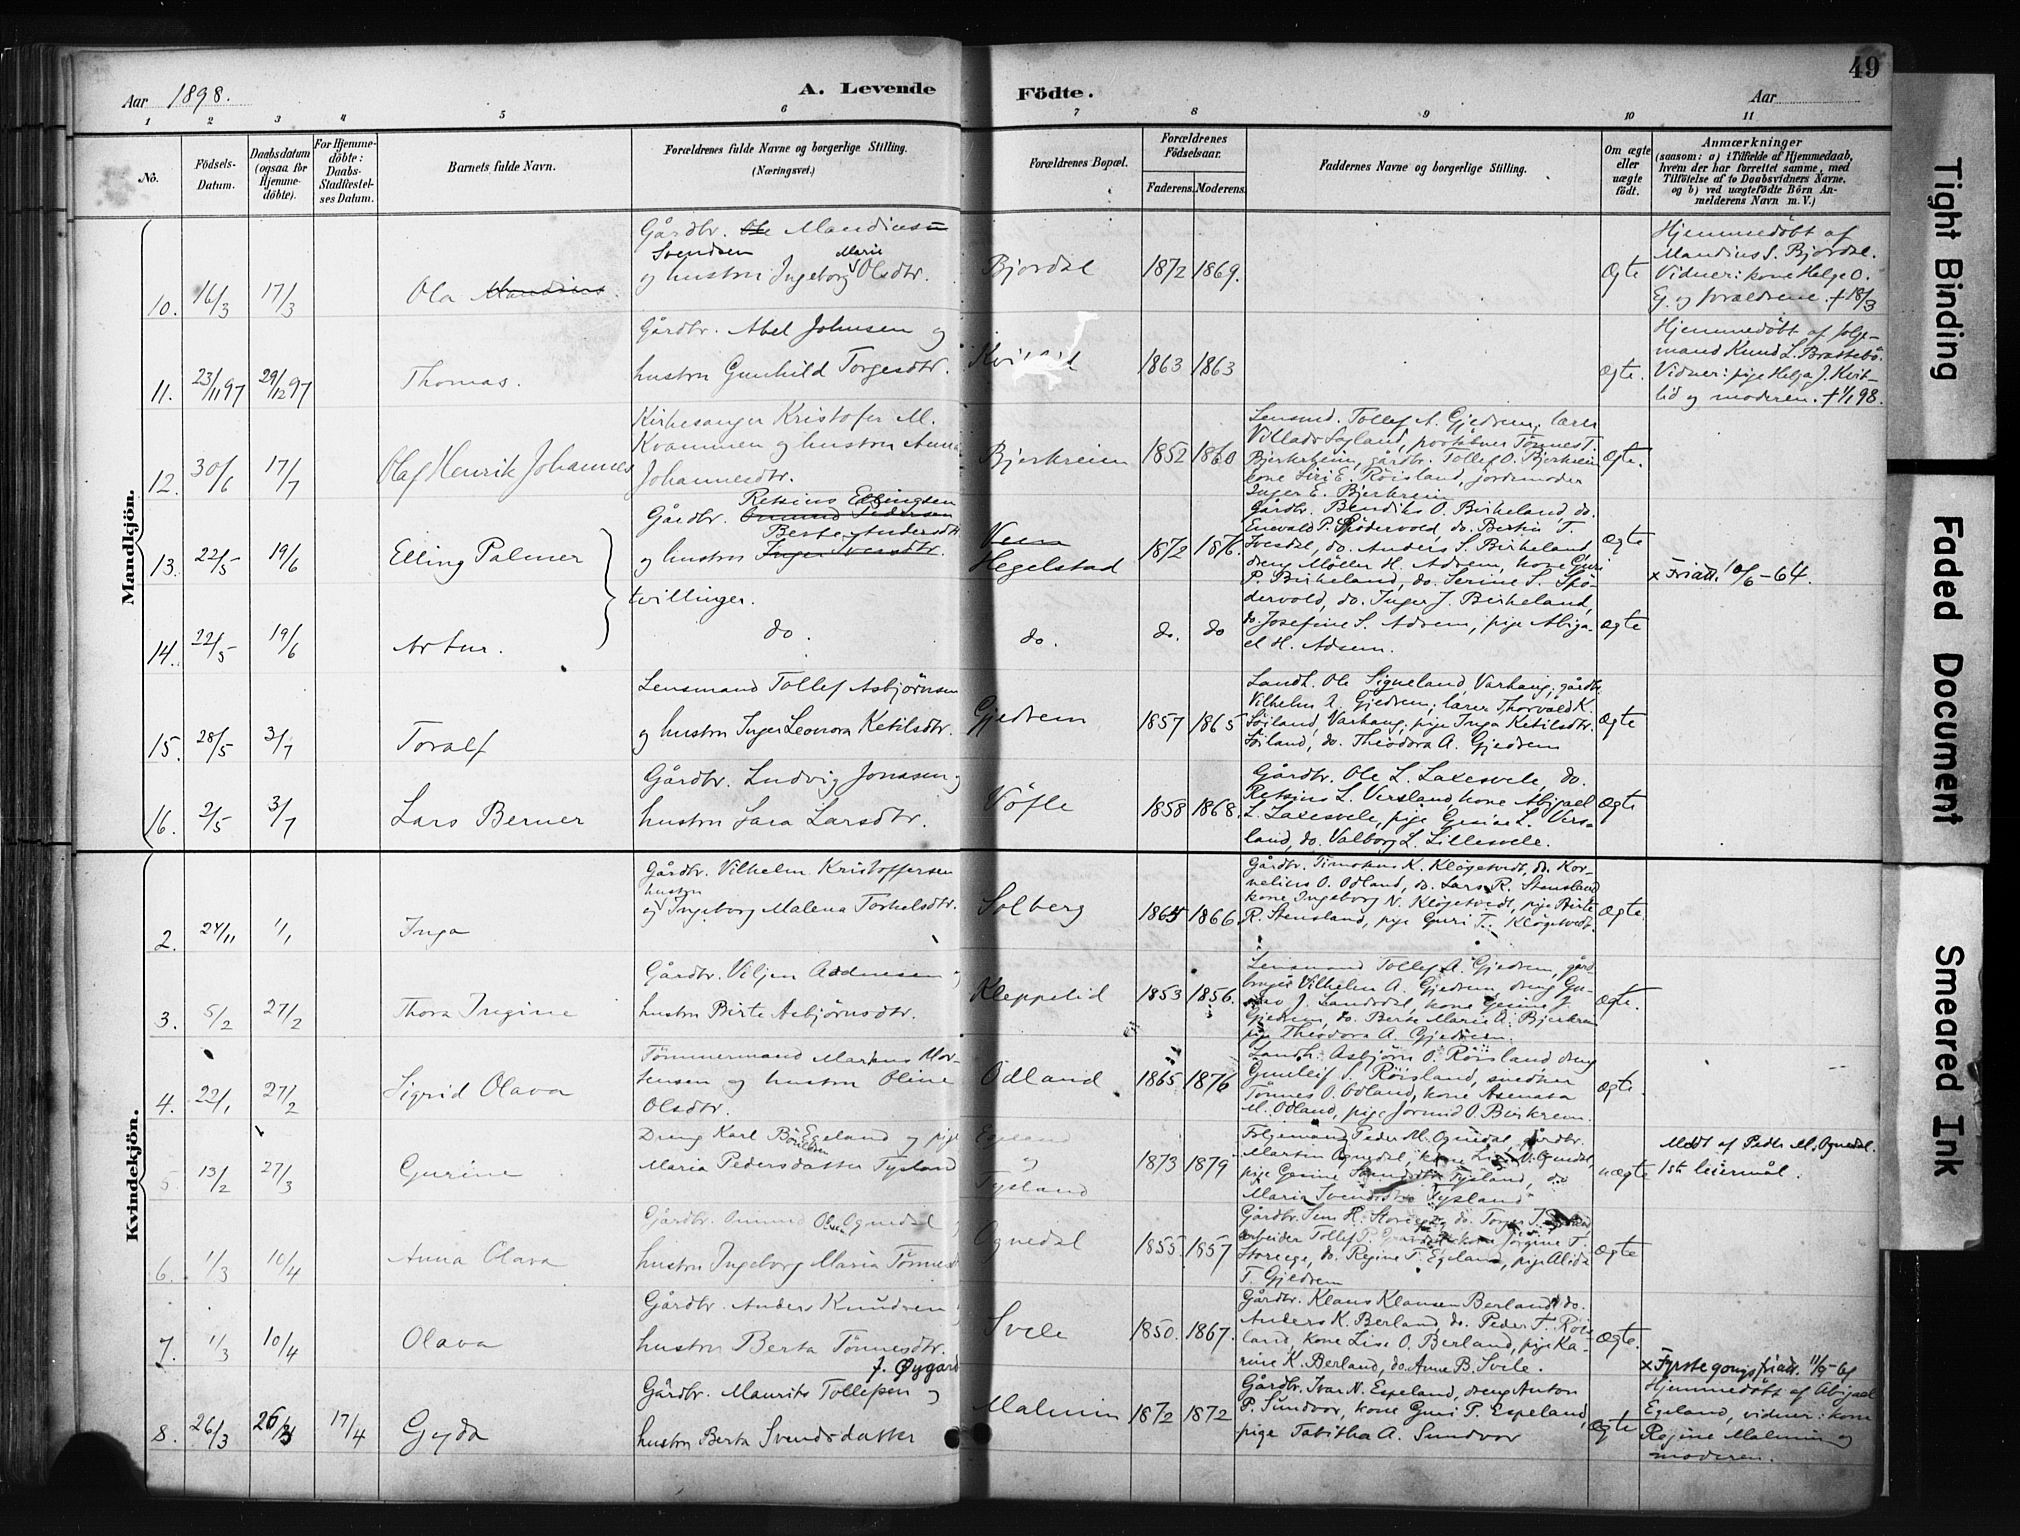 49
Aar 1898.
A. Levende Födte.
Aar
1 2 3 4 5 6 7 8 9 10 11
No.
Födsels-Datum.
Daabsdatum (ogsaa for Hjemme-döbte).
For Hjemme-döbte: Daabs-Stadfæstel-ses Datum.
Barnets fulde Navn.
Forældrenes fulde Navne og borgerlige Stilling.
(Næringsvei.)
Forældrenes Bopæl.
Forældrenes Födselsaar.
Faderens. Moderens.
Faddernes Navne og borgerlige Stilling.
Om ægte eller uægte födt.
Anmærkninger
(saasom: a) i Tilfælde af Hjemmedaab,
hvem der har forrettet samme, med
Tilföielse af to Daabsvidners Navne,
og b) ved uægtefödte Börn An-
melderens Navn m. V.)
Mandkjön.
10. 16/3 17/3 Ola Mandius.
Gårdbr. Ole Mandius
Svendsen Marie
og hustru Ingeborg Olsdtr.
Bjordal 1872 1869. Ægte
Hjemmedöbt af
Mandius S. Bjordal.
Vidner: kone Helge O.
Ej. og forældrene. † 18/3
11. 23/11 97 29/12 97 Thomas.
Gårdbr. Abel Johnsen og
hustru Gunhild Torgesdtr.
1863 1863 Ægte.
Hjemmedöbt af følge-
mand Knud L. Brattebö.
Vidner: pige Helga J. Kvit-
lid og moderen. † 1/1 98.
12. 30/6 17/7 Olaf Henrik Johannes
Kirkesanger Kristofer M.
Kvammen og hustru Anna
Johannesdtr.
Bjerkreim 1852 1860
Lensmd. Tollef A. Gjedrem, lærer
Villads Søyland, postaabner Tønnes T.
Bjerkreim, gårdbr. Tollef O. Bjerkreim
kone Siri E. Røisland, jordemoder
Inger E. Bjerkreim
Ægte.
13. 22/5 19/6 Elling Palmer
Retsius Ellingsen
Gårdbr. Omund Pedersen
Berte Andersdtr
og hustru Inger Iversdtr.
tvillinger.
Veen
Hegelstad 1872 1876.
Gårdbr. Bendiks O. Birkeland, do.
Enevald P. Spödervold, do. Bertin T.
Ivesdal, do. Anders S. Birkeland,
dreng Møller H. Adsem, kone Guri
P. Birkeland, do. Serine S. Spö-
dervold, do. Inger J. Birkeland,
do. Josefine S. Adsem, pige Abiga-
el H. Adsem.
Ægte
x Friatt. 10/6-64.
14. 22/5 19/6 Artur. do. do. do. do Ægte
15. 28/5 3/7 Toralf
Lensmand Tollef Asbjørnsen
og hustru Inger Leonora Ketilsdtr.
Gjedrem 1857 1865
Landh. Ole Sigueland, Varhaug; gårdbr.
Vilhelm A. Gjedrem; lærer Thorvald K.
Søiland, Varhaug; pige Inga Ketilsdtr.
Söiland, do. Theodora A. Gjedrem
Ægte
16. 2/5 3/7 Lars Berner
Gårdbr. Ludvig Jonassen og
hustru Sara Larsdtr.
Vöfle 1858 1868.
Gårdbr. Ole L. Laxesvele, do.
Retsius L. Versland, kone Abigael
L. Laxesvele, pige Gesine L. Vers-
land, do. Valborg L. Lillesvele.
Ægte
Kvindekjön.
2. 24/11 1/1 Inga
Gårdbr. Vilhelm Kristoffersen
hustru
og Ingeborg Malena Torkelsdtr.
Solberg 1865 1866
Gårdbr. Timoteus K. Klögetvedt, do. Kor-
nelius O. Odland, do. Lars R. Stensland
kone Ingeborg N. Klögetvedt, pige Birte
R. Stensland, pige Guri T. Klögetvedt.
Ægte.
3. 5/2 27/2 Thora Ingine
Gårdbr. Viljen Aadnesen og
hustru Birte Asbjørnsdtr.
Kleppelid 1853 1856.
Lensmand Tollef A. Gjedrem, gård-
bruger Vilhelm A. Gjedrem, dreng Gu-
stav J. Sandsdal, kone Gesine J.
Gjedrem, do. Berte Marie A. Bjerkreim
pige Theodora A. Gjedrem.
Ægte.
4. 22/1 27/2 Sigrid Olava
Tömmermand Markus Mor-
tensen og hustru Oline
Olsdtr.
Odland 1865 1876
Landh. Asbjørn O. Röisland, dreng
Gunleif S. Röisland, snedker
Tönnes O. Odland, kone Asenata
M. Odland, pige Jorund O. Birkrem.
Ægte.
5 13/2 27/3 Gurine
Dreng Karl Egeland og pige
Maria Pedersdatter Tysland
Egeland
og
Tysland
1873 1879
Følgemand Peder M. Ognedal, gårdbr.
Martin Ognedal, kone Lise O. Ognedal,
pige Gesine Tysland, do
Maria Svendsdtr. Tysland
uægte
Meldt af Peder M. Ognedal.
1ste leiermål.
6. 1/3 10/4 Anna Olava
Gårdbr. Omund Olsen Ognedal
hustru Ingeborg Maria Tönnesd
Ognedal 1855 1857
Gårdbr. Sem H. Storeega, do. Torger T.
arbeider Tollef P. kone Jörgine T.
Storeega, do. Regine T. Egeland, pige Alida
T. Gjedrem
Ægte
7. 1/3 10/4 Olava
Gårdbr. Anders Knudsen
hustru Berta Tönnesdtr.
f. Øygard
Svele 1850. 1867.
Gårdbr. Klaus Klausen Berland, do.
Anders K. Berland, do. Peder T. Röis-
land, kone Lise O. Berland, pige Ka-
rine K. Berland, do. Anne B. Svele.
Ægte.
8. 26/3 26/3 17/4 Gyda
Gårdbr. Maurits Tollefsen og
hustru Berta Svendsdatter
Malmin 1872 1872
Gårdbr. Ivar N. Espeland, dreng Anton
P. Sundvor, kone Guri P. Espeland,
pige Tabitha A. Sundvor
Ægte
x Fyrstegongsfriatt. 11/5-64
Hjemmedöbt af Abigael
Egeland, vidner: kone
Regine Malmin og
moderen.
Tight Binding
Faded Document
Smeared Ink